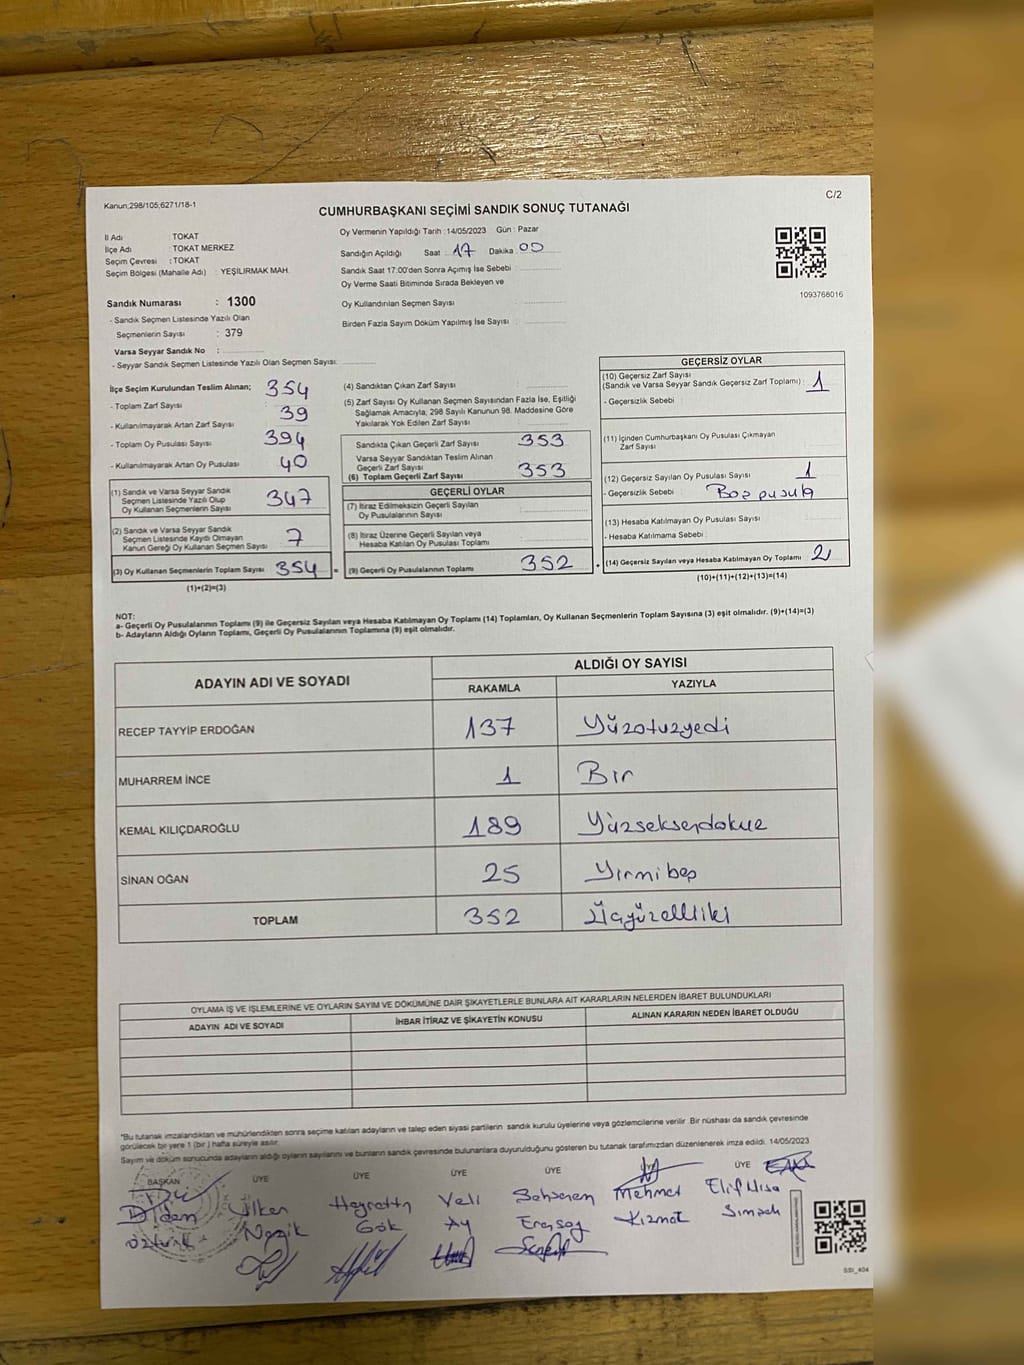 Kanun;298/105;6271/18-1
C/2
CUMHURBAŞKANI SEÇİMİ SANDIK SONUÇ TUTANAĞI
İl Adı TOKAT
İlçe Adı : TOKAT MERKEZ
Seçim Çevresi : TOKAT
Seçim Bölgesi (Mahalle Adı) : YEŞİLIRMAK MAH.
Oy Vermenin Yapıldığı Tarih : 14/05/2023 Gün : Pazar
Sandığın Açıldığı Saat : 17 Dakika : 00
Sandık Saat 17:00'den Sonra Açımış İse Sebebi :
Oy Verme Saati Bitiminde Sırada Bekleyen ve
Oy Kullandırılan Seçmen Sayısı :
Birden Fazla Sayım Döküm Yapılmış İse Sayısı :
1093768016
Sandık Numarası : 1300
- Sandık Seçmen Listesinde Yazılı Olan
Seçmenlerin Sayısı : 379
Varsa Seyyar Sandık No :
- Seyyar Sandık Seçmen Listesinde Yazılı Olan Seçmen Sayısı:
İlçe Seçim Kurulundan Teslim Alınan;
- Toplam Zarf Sayısı : 354
- Kullanılmayarak Artan Zarf Sayısı : 39
- Toplam Oy Pusulası Sayısı : 394
- Kullanılmayarak Artan Oy Pusulası : 40
(1) Sandık ve Varsa Seyyar Sandık
Seçmen Listesinde Yazılı Olup
Oy Kullanan Seçmenlerin Sayısı 347
(2) Sandık ve Varsa Seyyar Sandık
Seçmen Listesinde Kaydı Olmayan
Kanun Gereği Oy Kullanan Seçmen Sayısı 7
(3) Oy Kullanan Seçmenlerin Toplam Sayısı 354
(1)+(2)=(3)
(4) Sandıktan Çıkan Zarf Sayısı :
(5) Zarf Sayısı Oy Kullanan Seçmen Sayısından Fazla İse, Eşitliği
Sağlamak Amacıyla, 298 Sayılı Kanunun 98. Maddesine Göre
Yakılarak Yok Edilen Zarf Sayısı :
Sandıkta Çıkan Geçerli Zarf Sayısı 353
Varsa Seyyar Sandıktan Teslim Alınan
Geçerli Zarf Sayısı
(6) Toplam Geçerli Zarf Sayısı 353
GEÇERLİ OYLAR
(7) İtiraz Edilmeksizin Geçerli Sayılan
Oy Pusulalarının Sayısı :
(8) İtiraz Üzerine Geçerli Sayılan veya
Hesaba Katılan Oy Pusulası Toplamı :
(9) Geçerli Oy Pusulalarının Toplamı 352
GEÇERSİZ OYLAR
(10) Geçersiz Zarf Sayısı
(Sandık ve Varsa Seyyar Sandık Geçersiz Zarf Toplamı) : 1
- Geçersizlik Sebebi :
(11) İçinden Cumhurbaşkanı Oy Pusulası Çıkmayan
Zarf Sayısı :
(12) Geçersiz Sayılan Oy Pusulası Sayısı : 1
- Geçersizlik Sebebi : Boş pusula
(13) Hesaba Katılmayan Oy Pusulası Sayısı :
- Hesaba Katılmama Sebebi :
(14) Geçersiz Sayılan veya Hesaba Katılmayan Oy Toplamı 2
(10)+(11)+(12)+(13)=(14)
NOT:
a- Geçerli Oy Pusulalarının Toplamı (9) ile Geçersiz Sayılan veya Hesaba Katılmayan Oy Toplamı (14) Toplamları, Oy Kullanan Seçmenlerin Toplam Sayısına (3) eşit olmalıdır. (9)+(14)=(3)
b- Adayların Aldığı Oyların Toplamı, Geçerli Oy Pusulalarının Toplamına (9) eşit olmalıdır.
ADAYIN ADI VE SOYADI ALDIĞI OY SAYISI
RAKAMLA YAZIYLA
RECEP TAYYİP ERDOĞAN 137 Yüzotuzyedi
MUHARREM İNCE 1 Bir
KEMAL KILIÇDAROĞLU 189 Yüzseksendokuz
SİNAN OĞAN 25 Yirmibeş
TOPLAM 352 Üçyüzelliiki
OYLAMA İŞ VE İŞLEMLERİNE VE OYLARIN SAYIM VE DÖKÜMÜNE DAİR ŞİKAYETLERLE BUNLARA AİT KARARLARIN NELERDEN İBARET BULUNDUKLARI
ADAYIN ADI VE SOYADI İHBAR İTİRAZ VE ŞİKAYETİN KONUSU ALINAN KARARIN NEDEN İBARET OLDUĞU
*Bu tutanak imzalandıktan ve mühürlendikten sonra seçime katılan adayların ve talep eden siyasi partilerin sandık kurulu üyelerine veya gözlemcilerine verilir. Bir nüshası da sandık çevresinde
görülecek bir yere 1 (bir) hafta süreyle asılır.
Sayım ve döküm sonucunda adayların aldığı oyların sayılarını ve bunların sandık çevresinde bulunanlara duyurulduğunu gösteren bu tutanak tarafımızdan düzenlenerek imza edildi. 14/05/2023
BAŞKAN ÜYE ÜYE ÜYE ÜYE ÜYE
Didem Öztürk
Ülker Nazik
Hayrettin Gök
Veli Ay
Mehmet Kizmat
Elif Nisa Şimşek
SSI_404